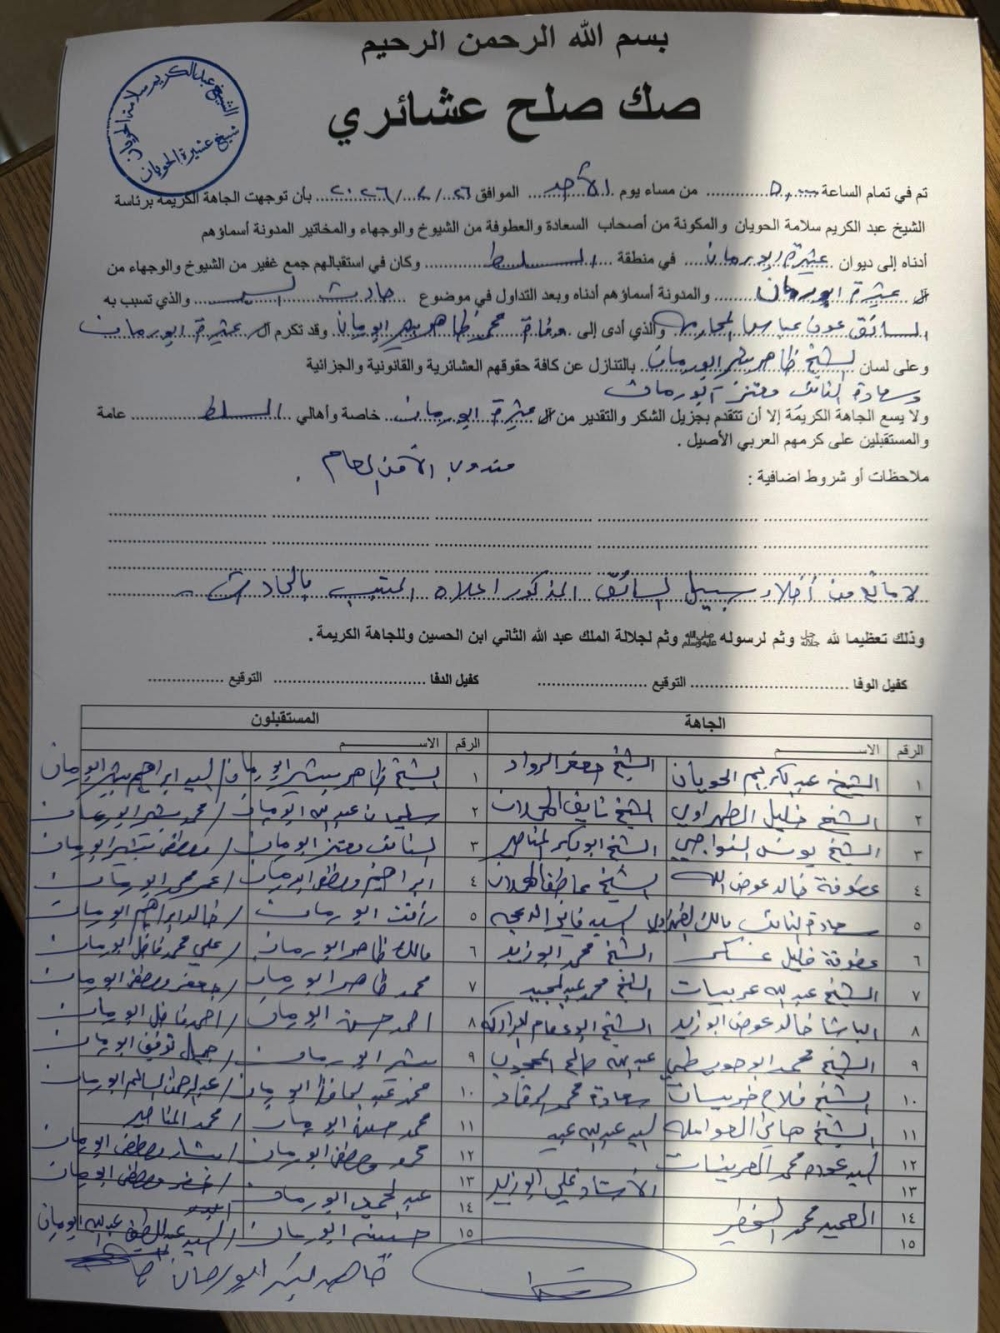 بسم الله الرحمن الرحيم
صك صلح عشائري
الشيخ عبدالكريم سلامة الحويان
شيخ عشيرة الحويان
تم في تمام الساعة ٥:٠٠ من مساء يوم الأحد الموافق ٢٠٢٦/ /٢٦ بأن توجهت الجاهة الكريمة برئاسة
الشيخ عبد الكريم سلامة الحويان والمكونة من أصحاب السعادة والعطوفة من الشيوخ والوجهاء والمخاتير المدونة أسماؤهم
أدناه إلى ديوان عشيرة ابورمان في منطقة السلط وكان في استقبالهم جمع غفير من الشيوخ والوجهاء من
آل عشيرة ابورمان والمدونة أسماؤهم أدناه وبعد التداول في موضوع حادث سير والذي تسبب به
السائق عون عباس والذي أدى إلى وفاة محمد ظاهر بشير ابورمان وقد تكرم آل عشيرة ابورمان
وعلى لسان الشيخ ظاهر بشير ابورمان بالتنازل عن كافة حقوقهم العشائرية والقانونية والجزائية
وسعادة النائب معتز ابورمان
ولا يسع الجاهة الكريمة إلا أن تتقدم بجزيل الشكر والتقدير من آل عشيرة ابورمان خاصة وأهالي السلط عامة
والمستقبلين على كرمهم العربي الأصيل .
ملاحظات أو شروط اضافية :
مندوب الأمن العام .
لا مانع من أخلاء سبيل السائق المذكور اعلاه المتسبب بالحادث
وذلك تعظيما لله جل جلاله وثم لرسوله ﷺ وثم لجلالة الملك عبد الله الثاني ابن الحسين وللجاهة الكريمة .
كفيل الوفا التوقيع كفيل الدفا التوقيع
الجاهة المستقبلون
الرقم الاســـــم الرقم الاســـــم
١ الشيخ عبدالكريم الحويان الشيخ جعفر الرواد ١ الشيخ ظاهر بشير ابورمان / السيد ابراهيم بشير ابورمان
٢ الشيخ خليل الظهراوي الشيخ نايف ٢ سليمان عبدالله ابورمان / محمد بشير ابورمان
٣ الشيخ يونس النواجي الشيخ ابوبكر المناصير ٣ النائب معتز ابورمان / مصطفى بشير ابورمان
٤ عطوفة خالد عوض الله الشيخ عاطف ٤ ابراهيم مصطفى ابورمان / عمر محمد ابورمان
٥ سعادة النائب مالك الظهراوي السيد فايز ٥ رأفت ابورمان / خالد ابراهيم ابورمان
٦ عطوفة خليل عسكر الشيخ محمد ابوزيد ٦ مالك ظاهر ابورمان / علي محمد فاضل ابورمان
٧ الشيخ عبدالله عربيات الشيخ محمد عبدالمجيد ٧ محمد ظاهر ابورمان / جعفر مصطفى ابورمان
٨ الباشا خالد عوض ابوزيد الشيخ ٨ احمد حسين ابورمان / احمد فاضل ابورمان
٩ الشيخ محمد عبدالله صالح ٩ بشر ابورمان / جميل توفيق ابورمان
١٠ الشيخ فلاح خريسات سعادة محمد الرقاد ١٠ محمد عبدالحافظ ابورمان / عبدالرحمن السالم ابورمان
١١ الشيخ هاني العوامله السيد عبدالله عبيد ١١ محمد حسين ابورمان / محمد المناصير
١٢ السيد محمد ١٢ محمود مصطفى ابورمان / بشار مصطفى ابورمان
١٣ الأستاذ علي ابوزيد ١٣ عبدالحميد ابورمان / خضر مصطفى ابورمان
١٤ العميد محمد ١٤
١٥ ١٥ حسين ابورمان / السيد عبداللطيف عبدالله ابورمان
ظاهر بشير ابورمان